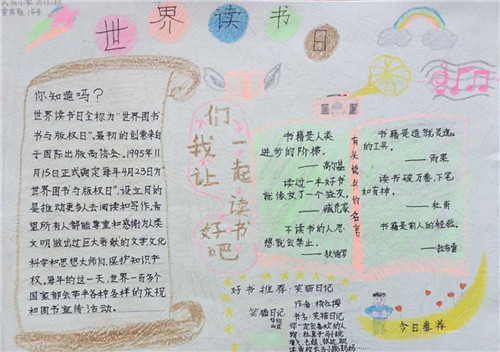 世界读书日
你知道吗？
世界读书日全称为“世界图书
与版权日”，最初的创意来自
于国际出版商协会。1995年11
月15日正式确定每年4月23日为
“世界图书与版权日”，设立目的
是推动更多人去阅读和写作，希
望所有人都能尊重和感谢为人类
文明做出过巨大贡献的文学文化
科学和思想大师们，保护知识产
权。每年的这一天，世界一百多个
国家都会举办各种各样的庆祝
和图书宣传活动。
让我们
一起读书
好吧
有关读书的名言
书籍是人类
进步的阶梯。
——高尔基
读过一本好书
就像交了一个益友。
——臧克家
不读书的人思
想就会禁止。
——狄德罗
书籍是造就灵魂
的工具。
——雨果
读书破万卷，下笔
如有神。
——杜甫
书籍是前人的经验。
好书推荐：笑猫日记
笑猫日记
作者：杨红樱
书名：笑猫日记
你一定会喜欢的人
今日推荐